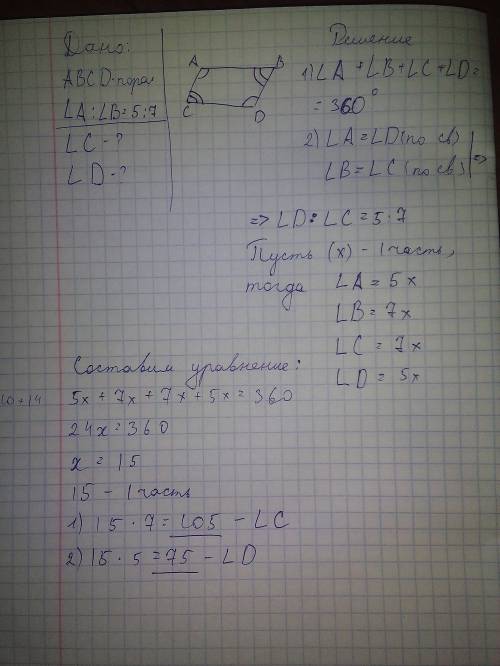 Дано:
ABCD-пар.
∠A:∠B=5:7
∠C-?
∠D-?
A B
C D
Решение
1) ∠A+∠B+∠C+∠D=
=360°
2) ∠A=∠D (по св)
∠B=∠C (по св) =>
=> ∠D:∠C=5:7
Пусть (x) - 1 часть,
тогда ∠A=5x
∠B=7x
∠C=7x
∠D=5x
Составим уравнение:
10+14
5x+7x+7x+5x=360
24x=360
x=15
15 - 1 часть
1) 15·7=105 - ∠C
2) 15·5=75 - ∠D